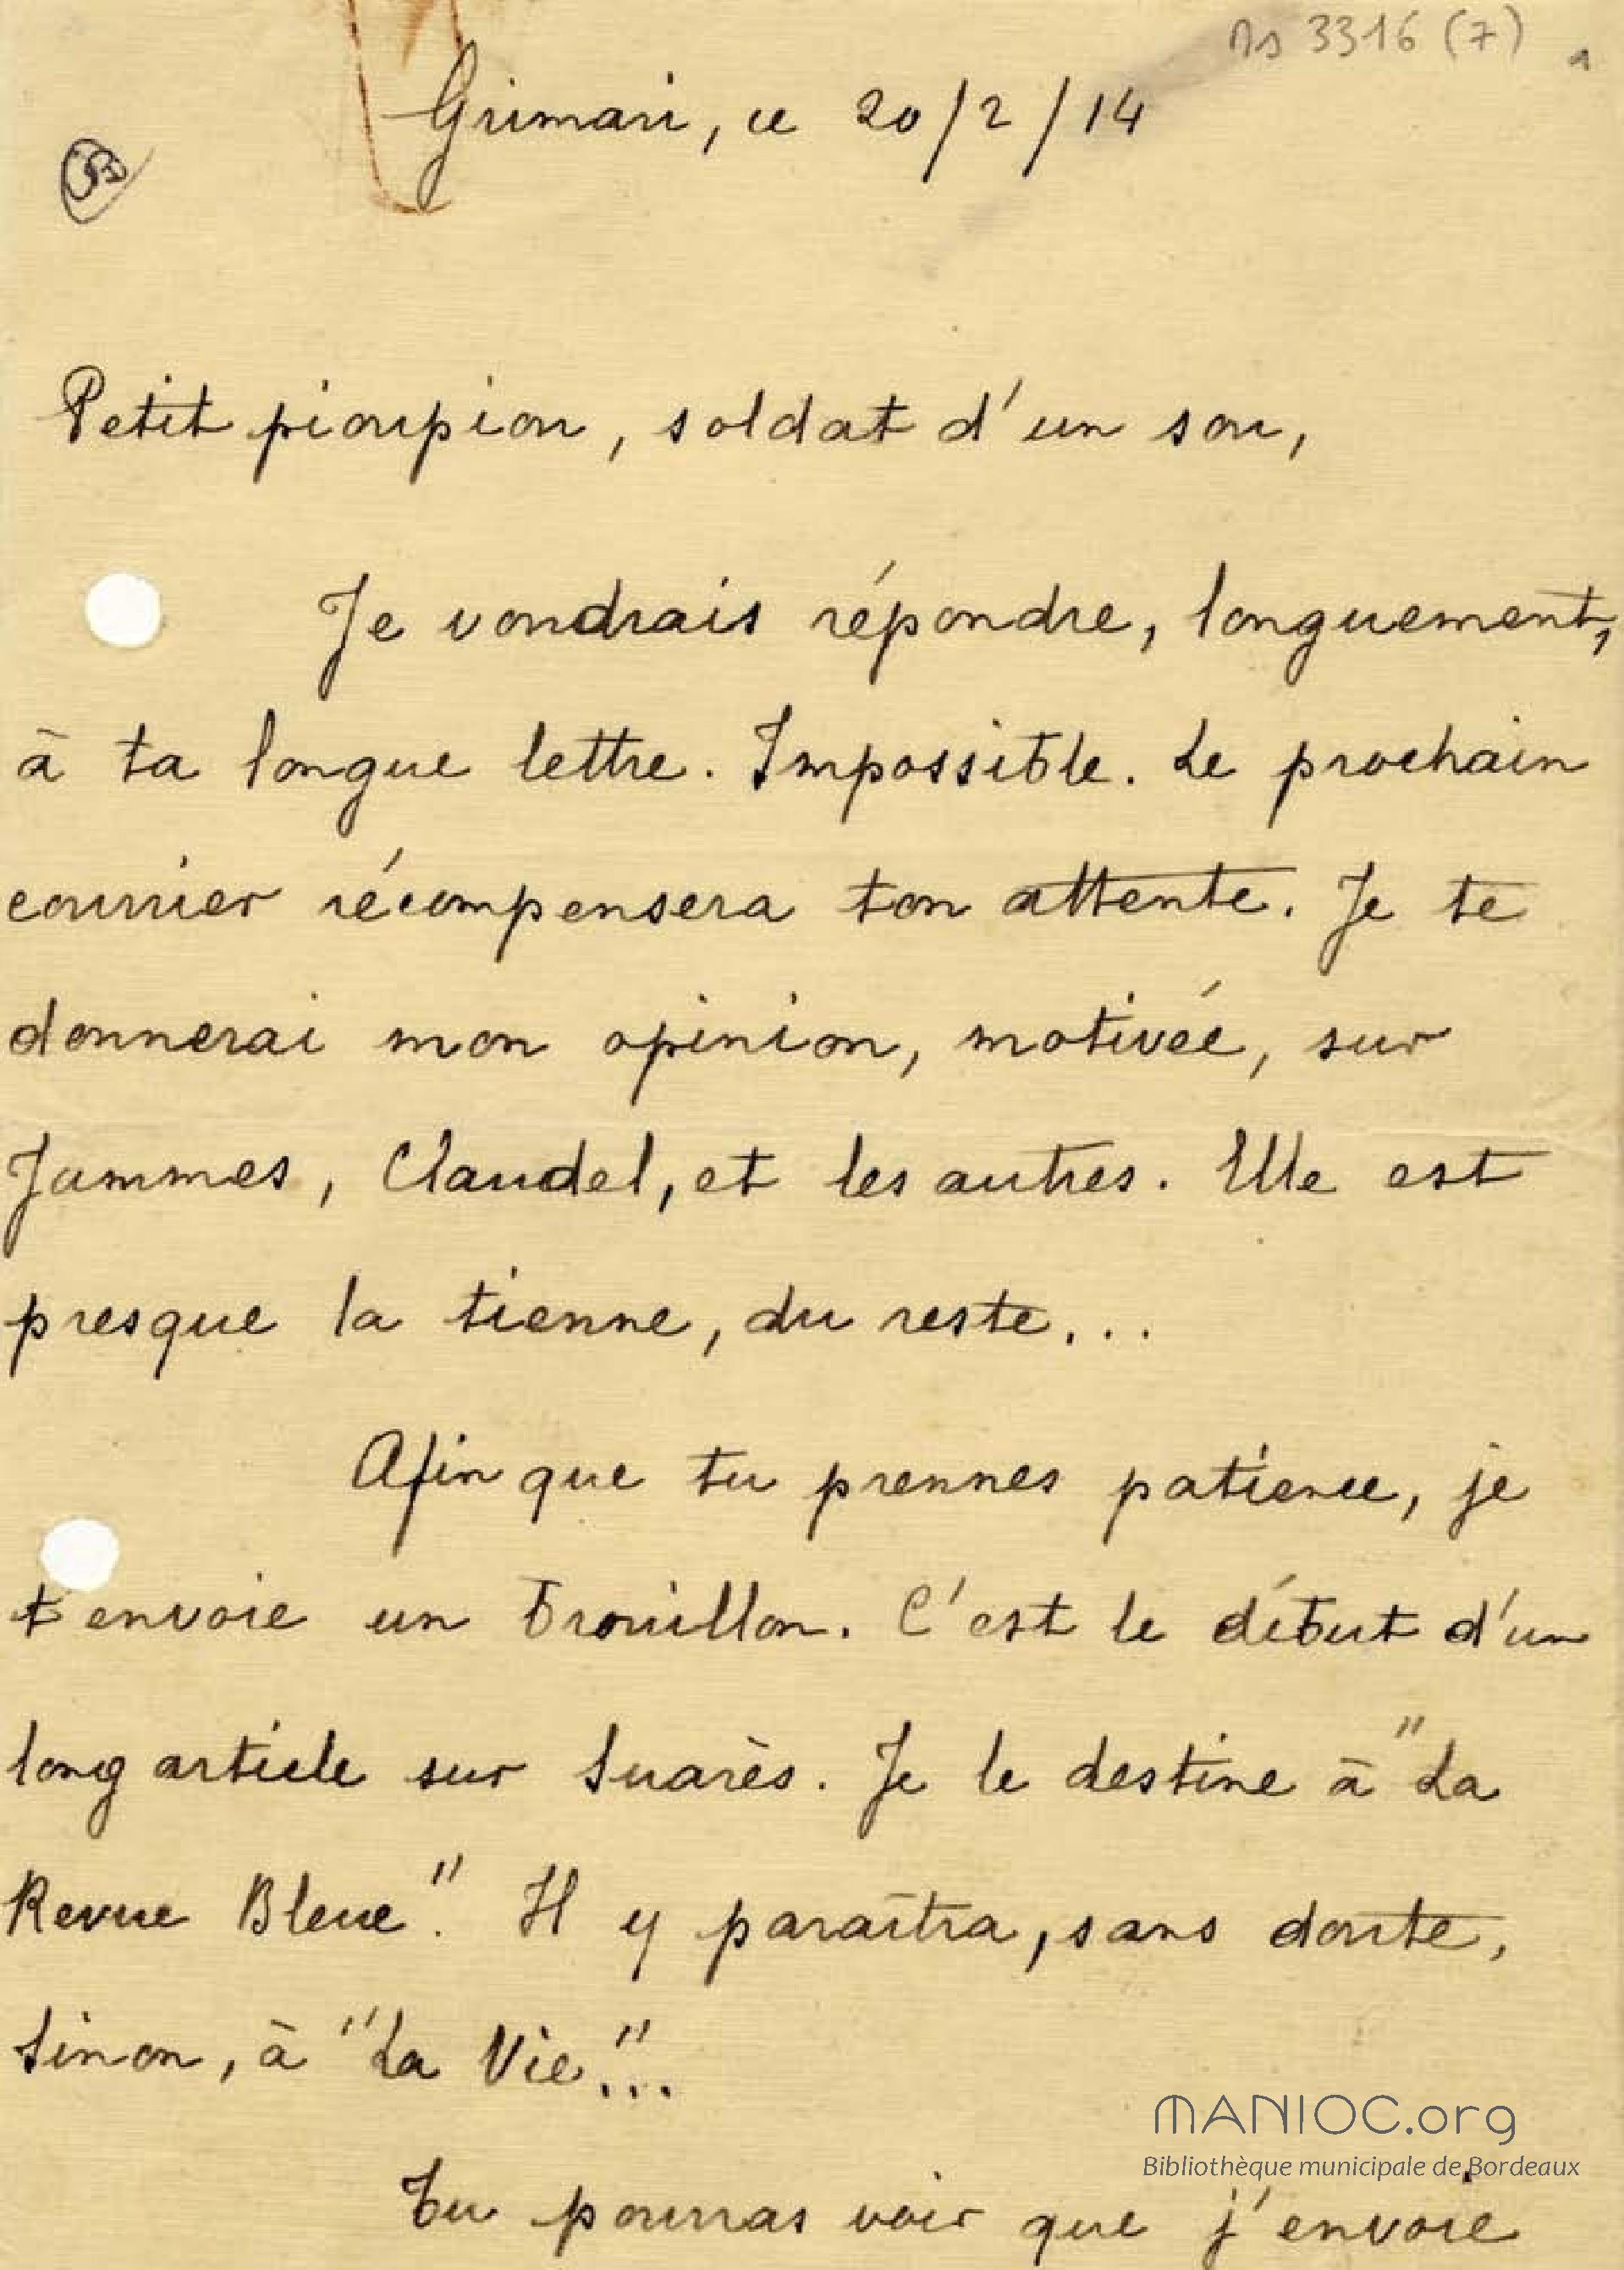 Ms 3316 (7)
Grimari, ce 20/2/14
Petit pioupiou, soldat d'un sou,
Je voudrais répondre, longuement,
à ta longue lettre. Impossible. Le prochain
courrier récompensera ton attente. Je te
donnerai mon opinion, motivée, sur
Jammes, Claudel, et les autres. Elle est
presque la tienne, du reste...
Afin que tu prennes patience, je
t'envoie un brouillon. C'est le début d'un
long article sur Suarès. Je le destine à "La
Revue Bleue". Il y paraîtra, sans doute,
Sinon, à "La Vie"...
Tu pourras voir que j'envoie
MANIOC.org
Bibliothèque municipale de Bordeaux